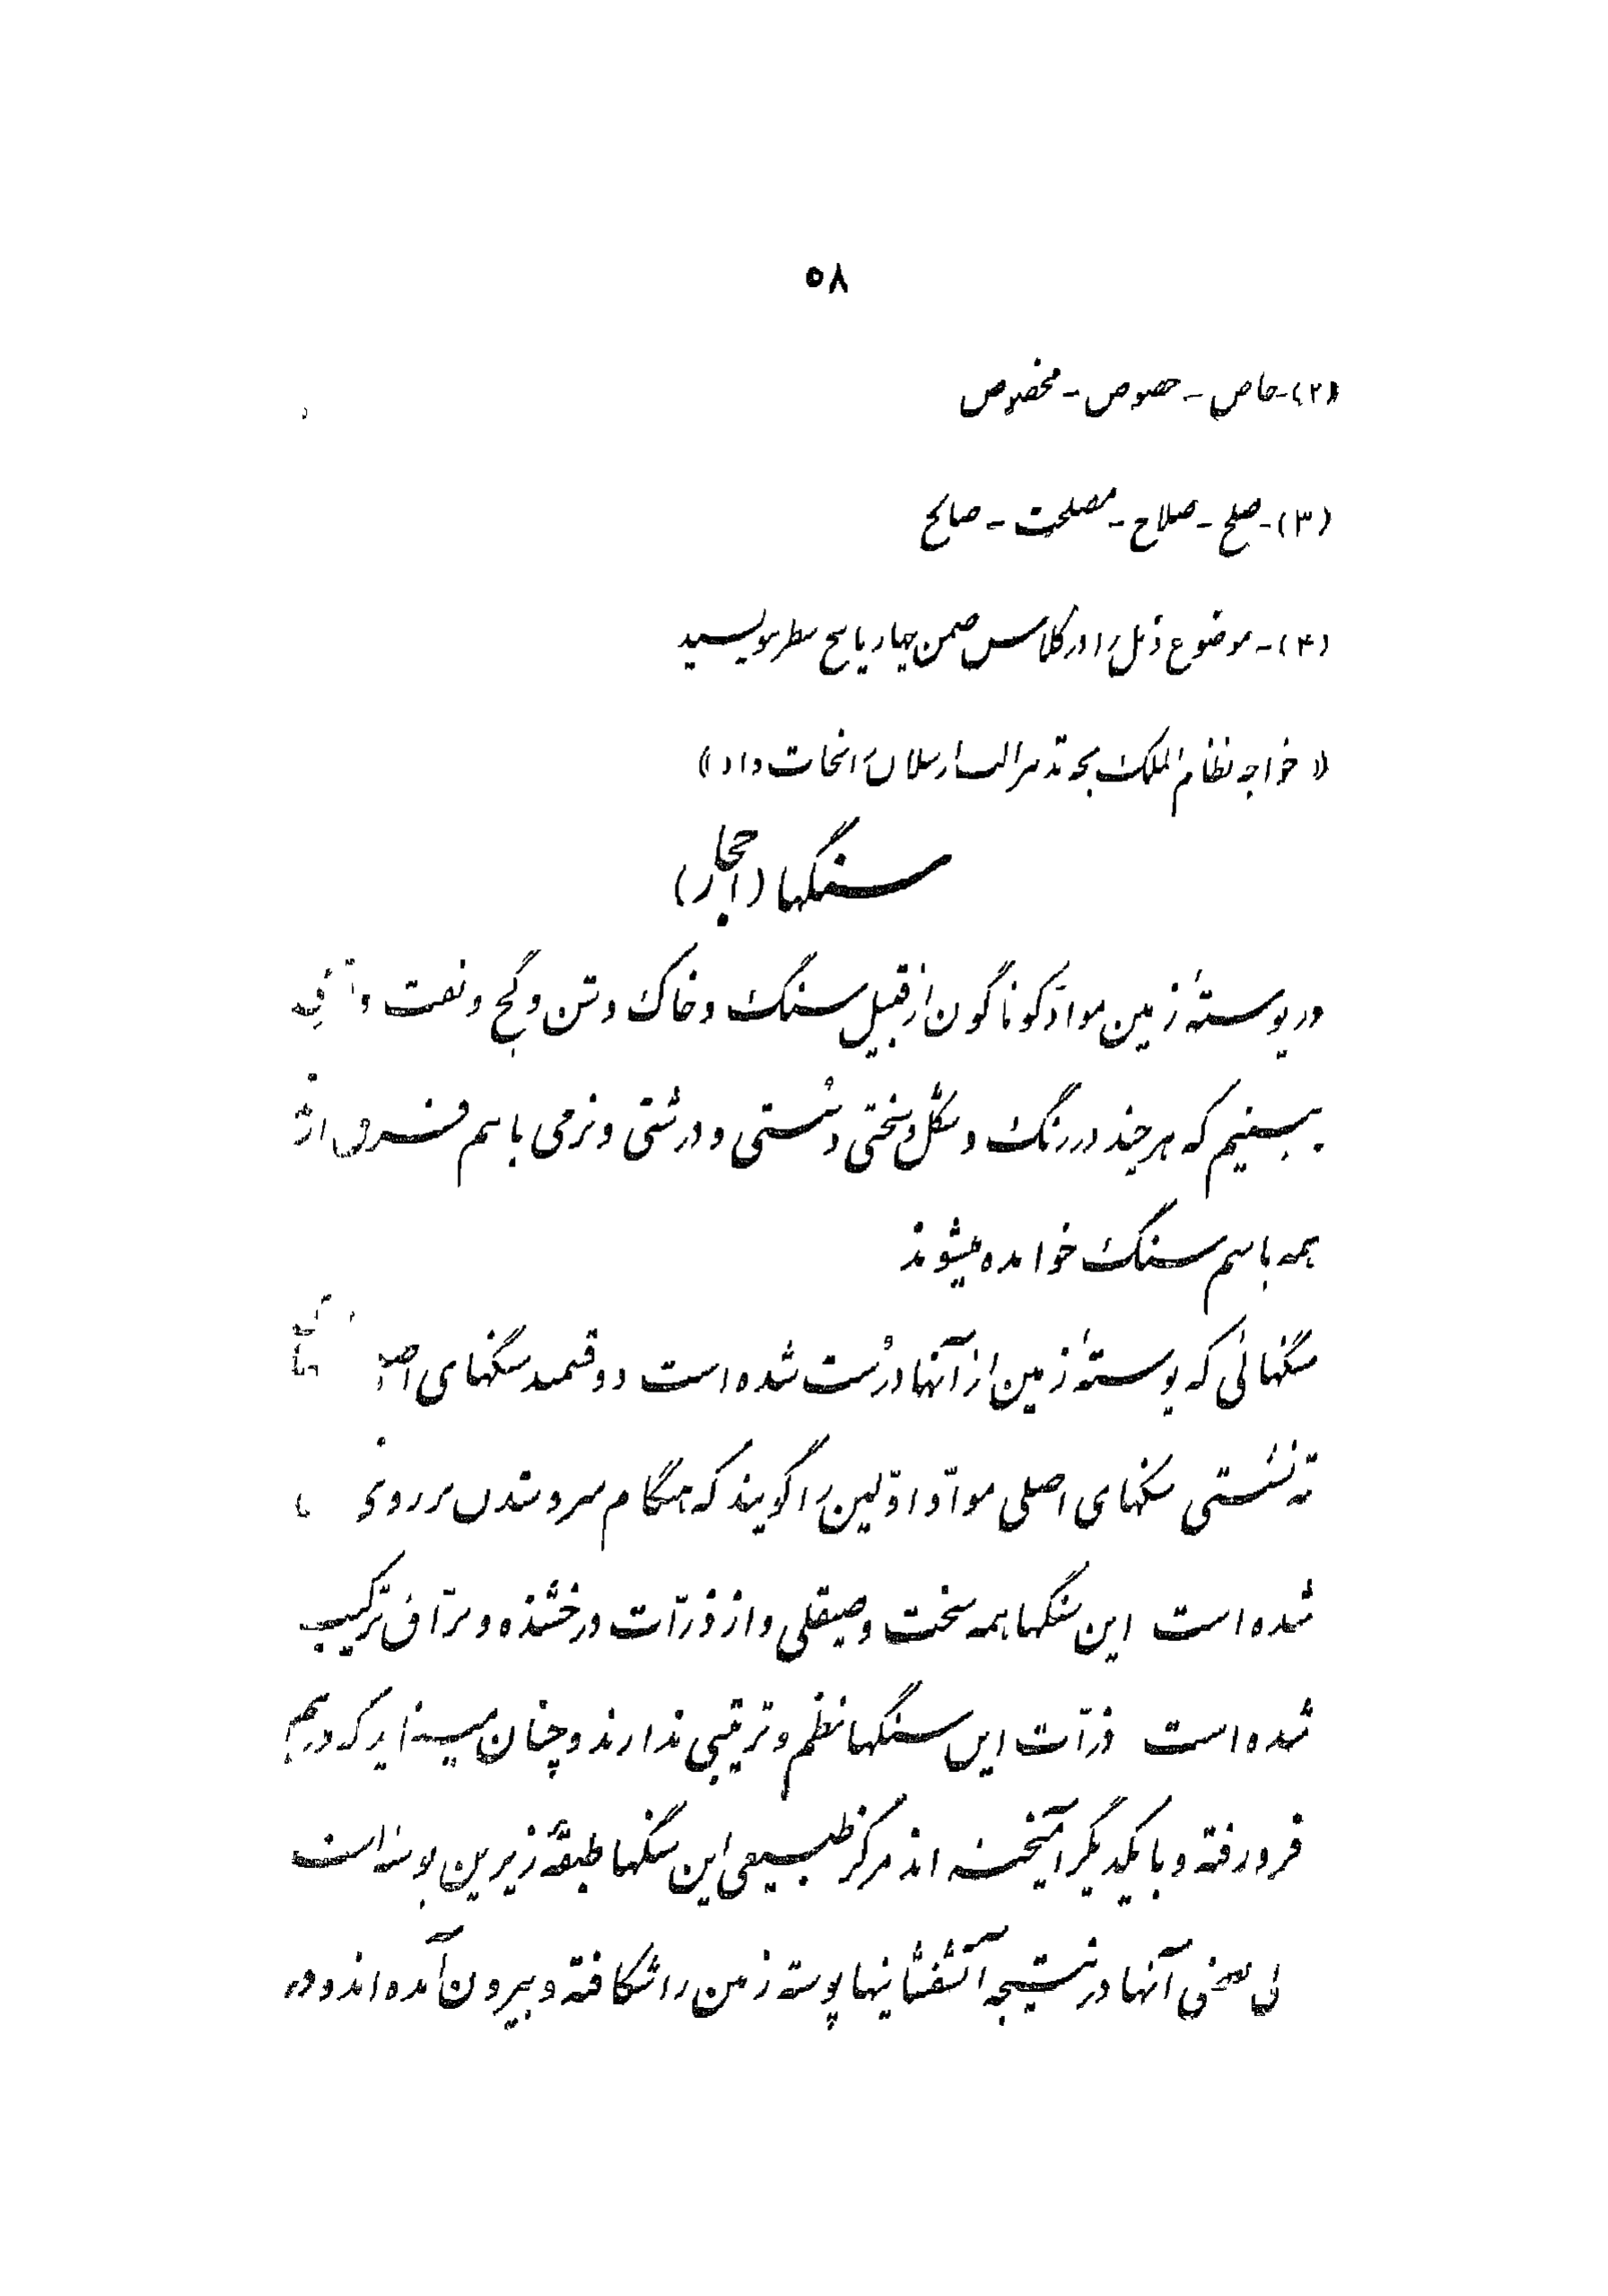 ۵۸
(۲)- خاص - خصوص - مخصوص
(۳)- صلح - صلاح - مصلحت - صالح
(۴)- موضوع ذیل را در کلاس ضمن چهار یا پنج سطر بنویسید
« خواجه نظام الملک بچه تدبیر الب ارسلان را نجات داد »
سنگها (احجار)
در پوستهٔ زمین موادّ گوناگون از قبیل سنگ و خاک و شن و گچ و نفت و
ببینیم که هر چند در رنگ و شکل و سختی و سستی و درشتی و نرمی با هم فرق
همه باسم سنگ خوانده میشوند
سنگهائی که پوستهٔ زمین از آنها درُست شده است دو قسمند سنگهای
ته نشستی سنگهای اصلی موادّ اوّلین را گویند که هنگام سرد شدن بر روی
شده است این سنگها همه سخت و صیقلی و از ذرّات درخشنده و برّاق ترکیب
شده است ذرّات این سنگها نظم و ترتیبی ندارند و چنان مینماید که درهم
فرو رفته و با یکدیگر آمیخته اند مرکز طبیعی این سنگها طبقهٔ زیرین پوسته است
لی بعضی آنها در نتیجه آتشفشانیها پوسته زمین را شکافته و بیرون آمده اند و در